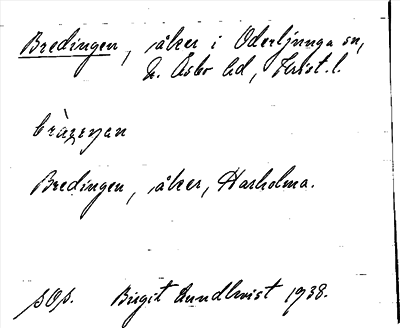 Bredingen, åker i Oderljunga sn,
N. Åsbo hd, Krist. l.
Bredingen, åker, Harholma.
sOs. Birgit Lundkvist 1938.